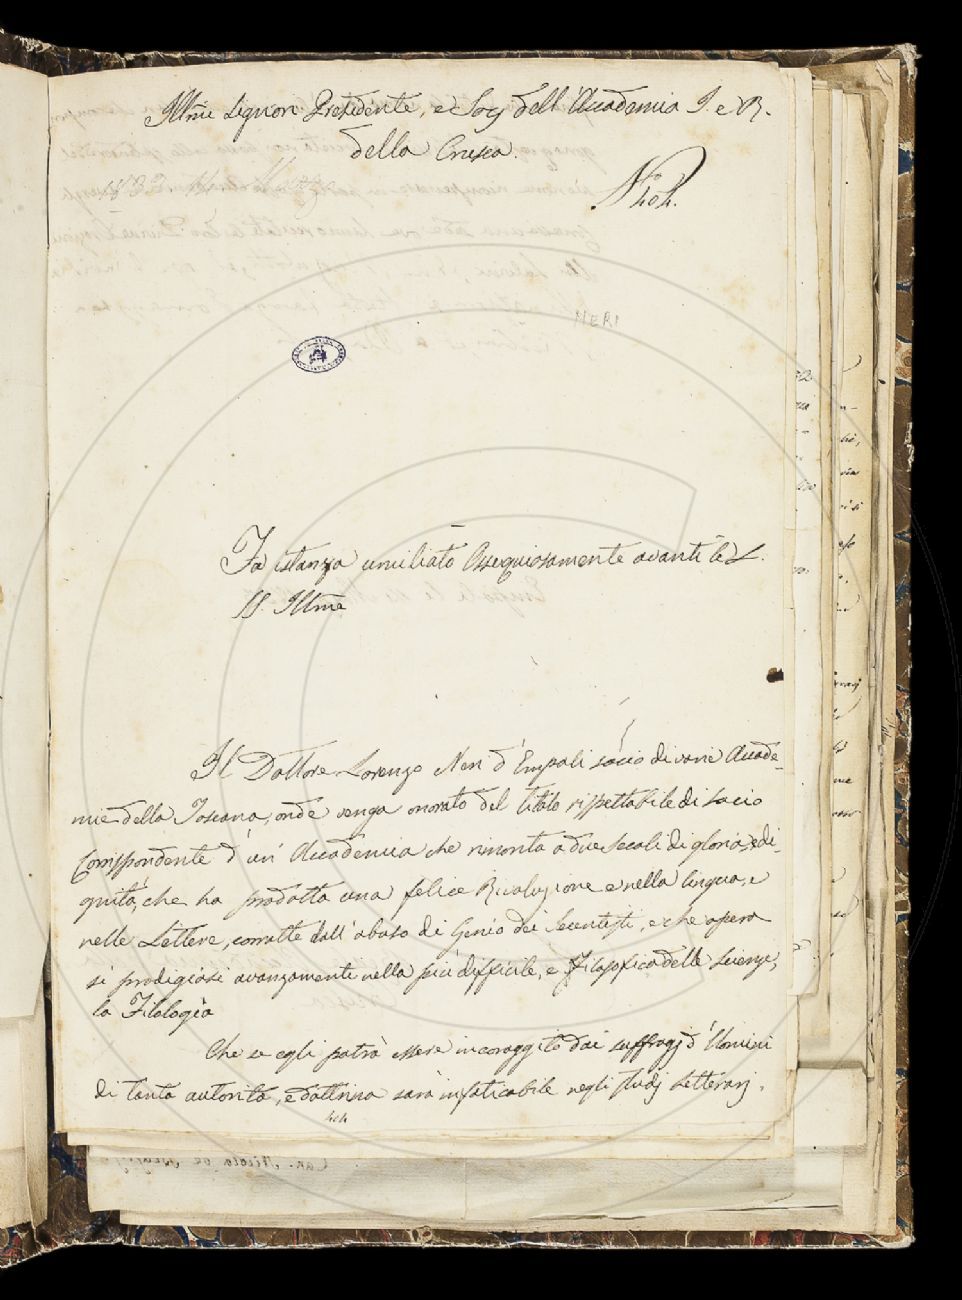 Illmi Signori Presidente, e Socj dell'Accademia I. e R.
della Crusca.
N.° 404.
NERI
Fa istanza umiliato Ossequiosamente avanti le L.
SS. Illme
Il Dottore Lorenzo Neri d'Empoli socio di varie Accade-
mie della Toscana, onde venga onorato del titolo rispettabile di Socio
Corrispondente d'un'Accademia che rimonta a due Secoli di gloria, e di-
gnità, che ha prodotta una felice Rivoluzione e nella lingua, e
nelle Lettere, corrotte dall'abuso di Genio dei Secentisti, e che opera
si prodigiosi avanzamenti nella più difficile, e Filosofica delle Scienze,
la Filologia
Che se egli potrà essere incoraggito dai suffragj d'Uomini
di tanta autorità, e dottrina sarà infaticabile negli studj Letterarj.
404